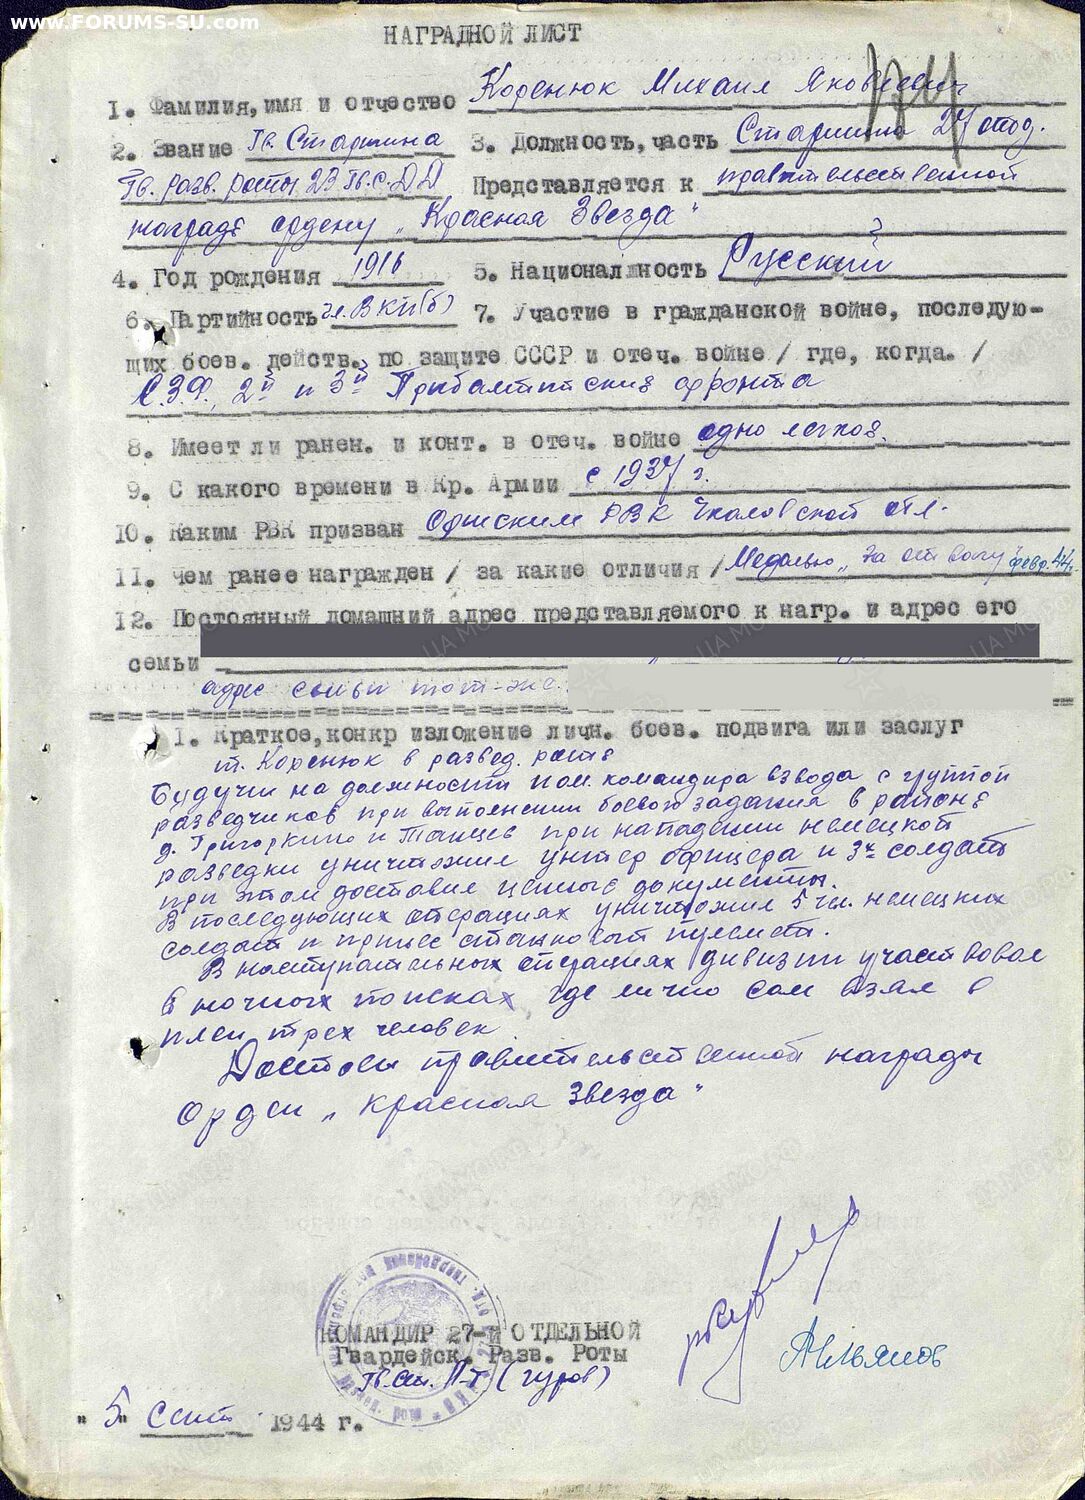 www.FORUMS-SU.com
НАГРАДНОЙ ЛИСТ
1. Фамилия, имя и отчество Коренюк Михаил Яковлевич
2. Звание Гв. Старшина 3. Должность, часть Старшина 27 отд.
Гв. разв. роты 23 Гв.С.Д Представляется к правительственной
награде ордену „Красная Звезда"
4. Год рождения 1916 5. Национальность Русский
6. Партийность чл. ВКП(б) 7. Участие в гражданской войне, последую-
щих боев. действ. по защите СССР и отеч. войне / где, когда. /
С.З.Ф., 2й и 3й Прибалтийский фронта
8. Имеет ли ранен. и конт. в отеч. войне одно легкое.
9. С какого времени в Кр. Армии с 1937 г.
10. Каким РВК призван Орским РВК Чкаловской обл.
11. Чем ранее награжден / за какие отличия / Медалью „За отвагу" февр. 44г.
12. Постоянный домашний адрес представляемого к нагр. и адрес его
семьи
адрес семьи тот-же.
1. Краткое, конкр изложение личн. боев. подвига или заслуг
т. Коренюк в развед. роте
Будучи на должности пом. командира взвода с группой
разведчиков при выполнении боевого задания в районе
д. Григоркино и Танцев при нападении немецкой
разведки уничтожил унтер офицера и 3х солдат
при этом доставил ценные документы.
В последующих операциях уничтожил 5 чел. немецких
солдат и принес станковый пулемет.
В наступательных операциях дивизии участвовал
в ночных поисках где лично сам взял в
плен трех человек
Достоин правительственной награды
Орден „Красная Звезда"
КОМАНДИР 27-й ОТДЕЛЬНОЙ
Гвардейск. Разв. Роты
Гв. ст. Л-т (Гуров)
"5" Сент. 1944 г.